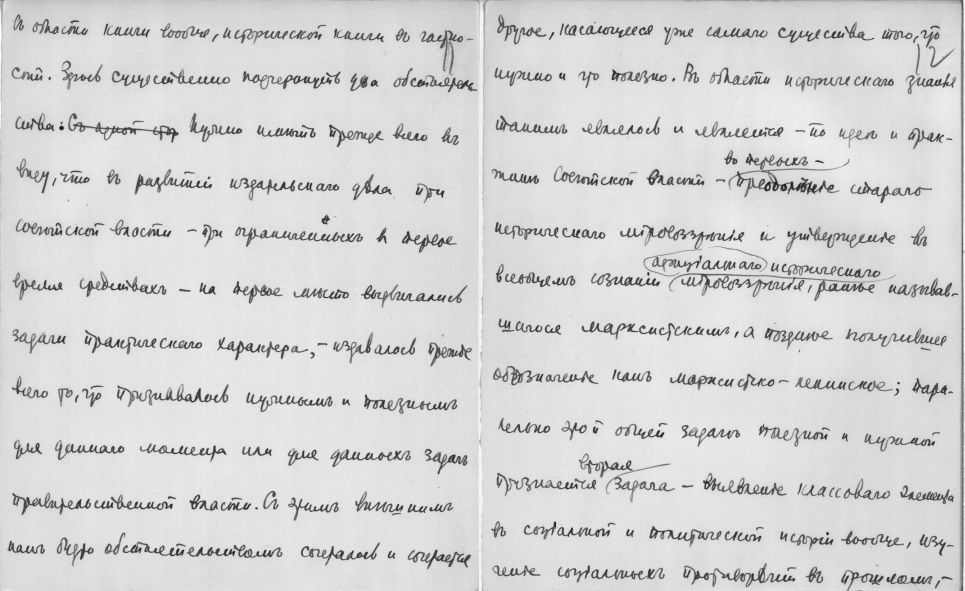 въ области книги вообще, исторической книги въ частно-
сти. Здѣсь существенно подчеркнуть два обстоятель-
ства: Съ одной стор Нужно имѣть прежде всего въ
виду, что въ развитіи издательскаго дѣла при
совѣтской власти – при ограниченныхъ въ первое
время средствахъ – на первое мѣсто выдвигались
задачи практическаго характера, – издавалось прежде
всего то, что признавалось нужнымъ и полезнымъ
для даннаго момента или для данныхъ задачъ
правительственной власти. Съ этимъ внѣшнимъ
какъ будто обстоятельствомъ сочеталось и сочетается
11
другое, касающееся уже самаго существа того, что
12
нужно и что полезно. Въ области историческаго знанія
такимъ являлось и является – по идеѣ и прак-
во первыхъ –
тикѣ Совѣтской власти – преодолѣніе стараго
историческаго міровоззрѣнія и утвержденіе въ
историческаго
всеобщемъ сознаніи міровоззрѣнія, ранѣе называв-
шагося марксистскимъ, а позднѣе получившее
обозначеніе какъ марксистско-ленинское; пара-
лельно этой общей задачѣ полезной и нужной
вторая
признается задача – выявленіе классоваго элемента
въ соціальной и политической исторіи вообще, изу-
ченіе соціальныхъ противорѣчій въ прошломъ, –